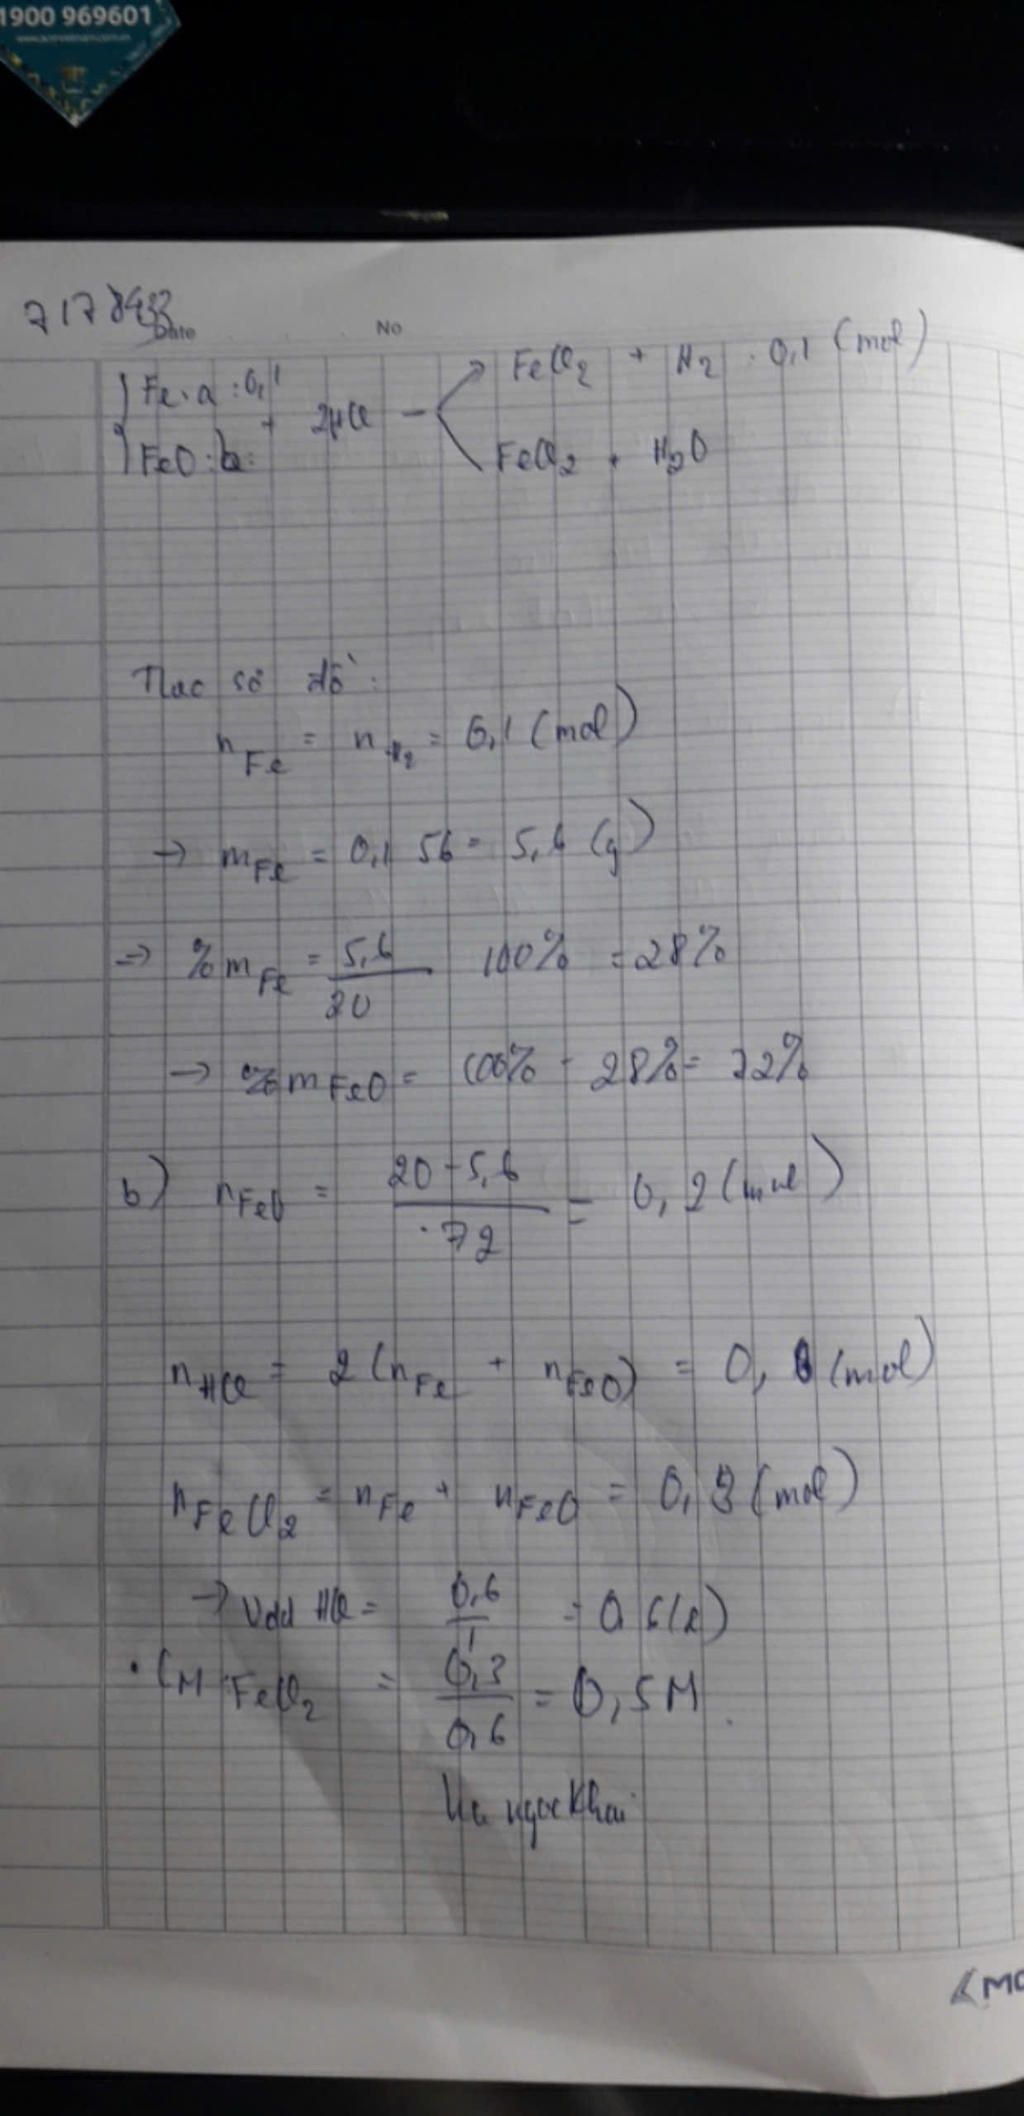 1900 969601
7178432
Date No
Fe: a: 0,1 + 2HCl → FeCl2 + H2 : 0,1 (mol)
FeO: b: FeCl2 + H2O
Theo sơ đồ:
nFe = nH2 = 0,1 (mol)
→ mFe = 0,1 56 = 5,6 (g)
→ %mFe = 5,6/20 100% = 28%
→ %mFeO = 100% - 28% = 72%
b) nFeO = 20-5,6/72 = 0,2 (mol)
nHCl = 2(nFe + nFeO) = 0,6 (mol)
nFeCl2 = nFe + nFeO = 0,3 (mol)
→ Vdd HCl = 0,6/1 = 0,6(l)
• CM FeCl2 = 0,3/0,6 = 0,5M.
ngọc Khai